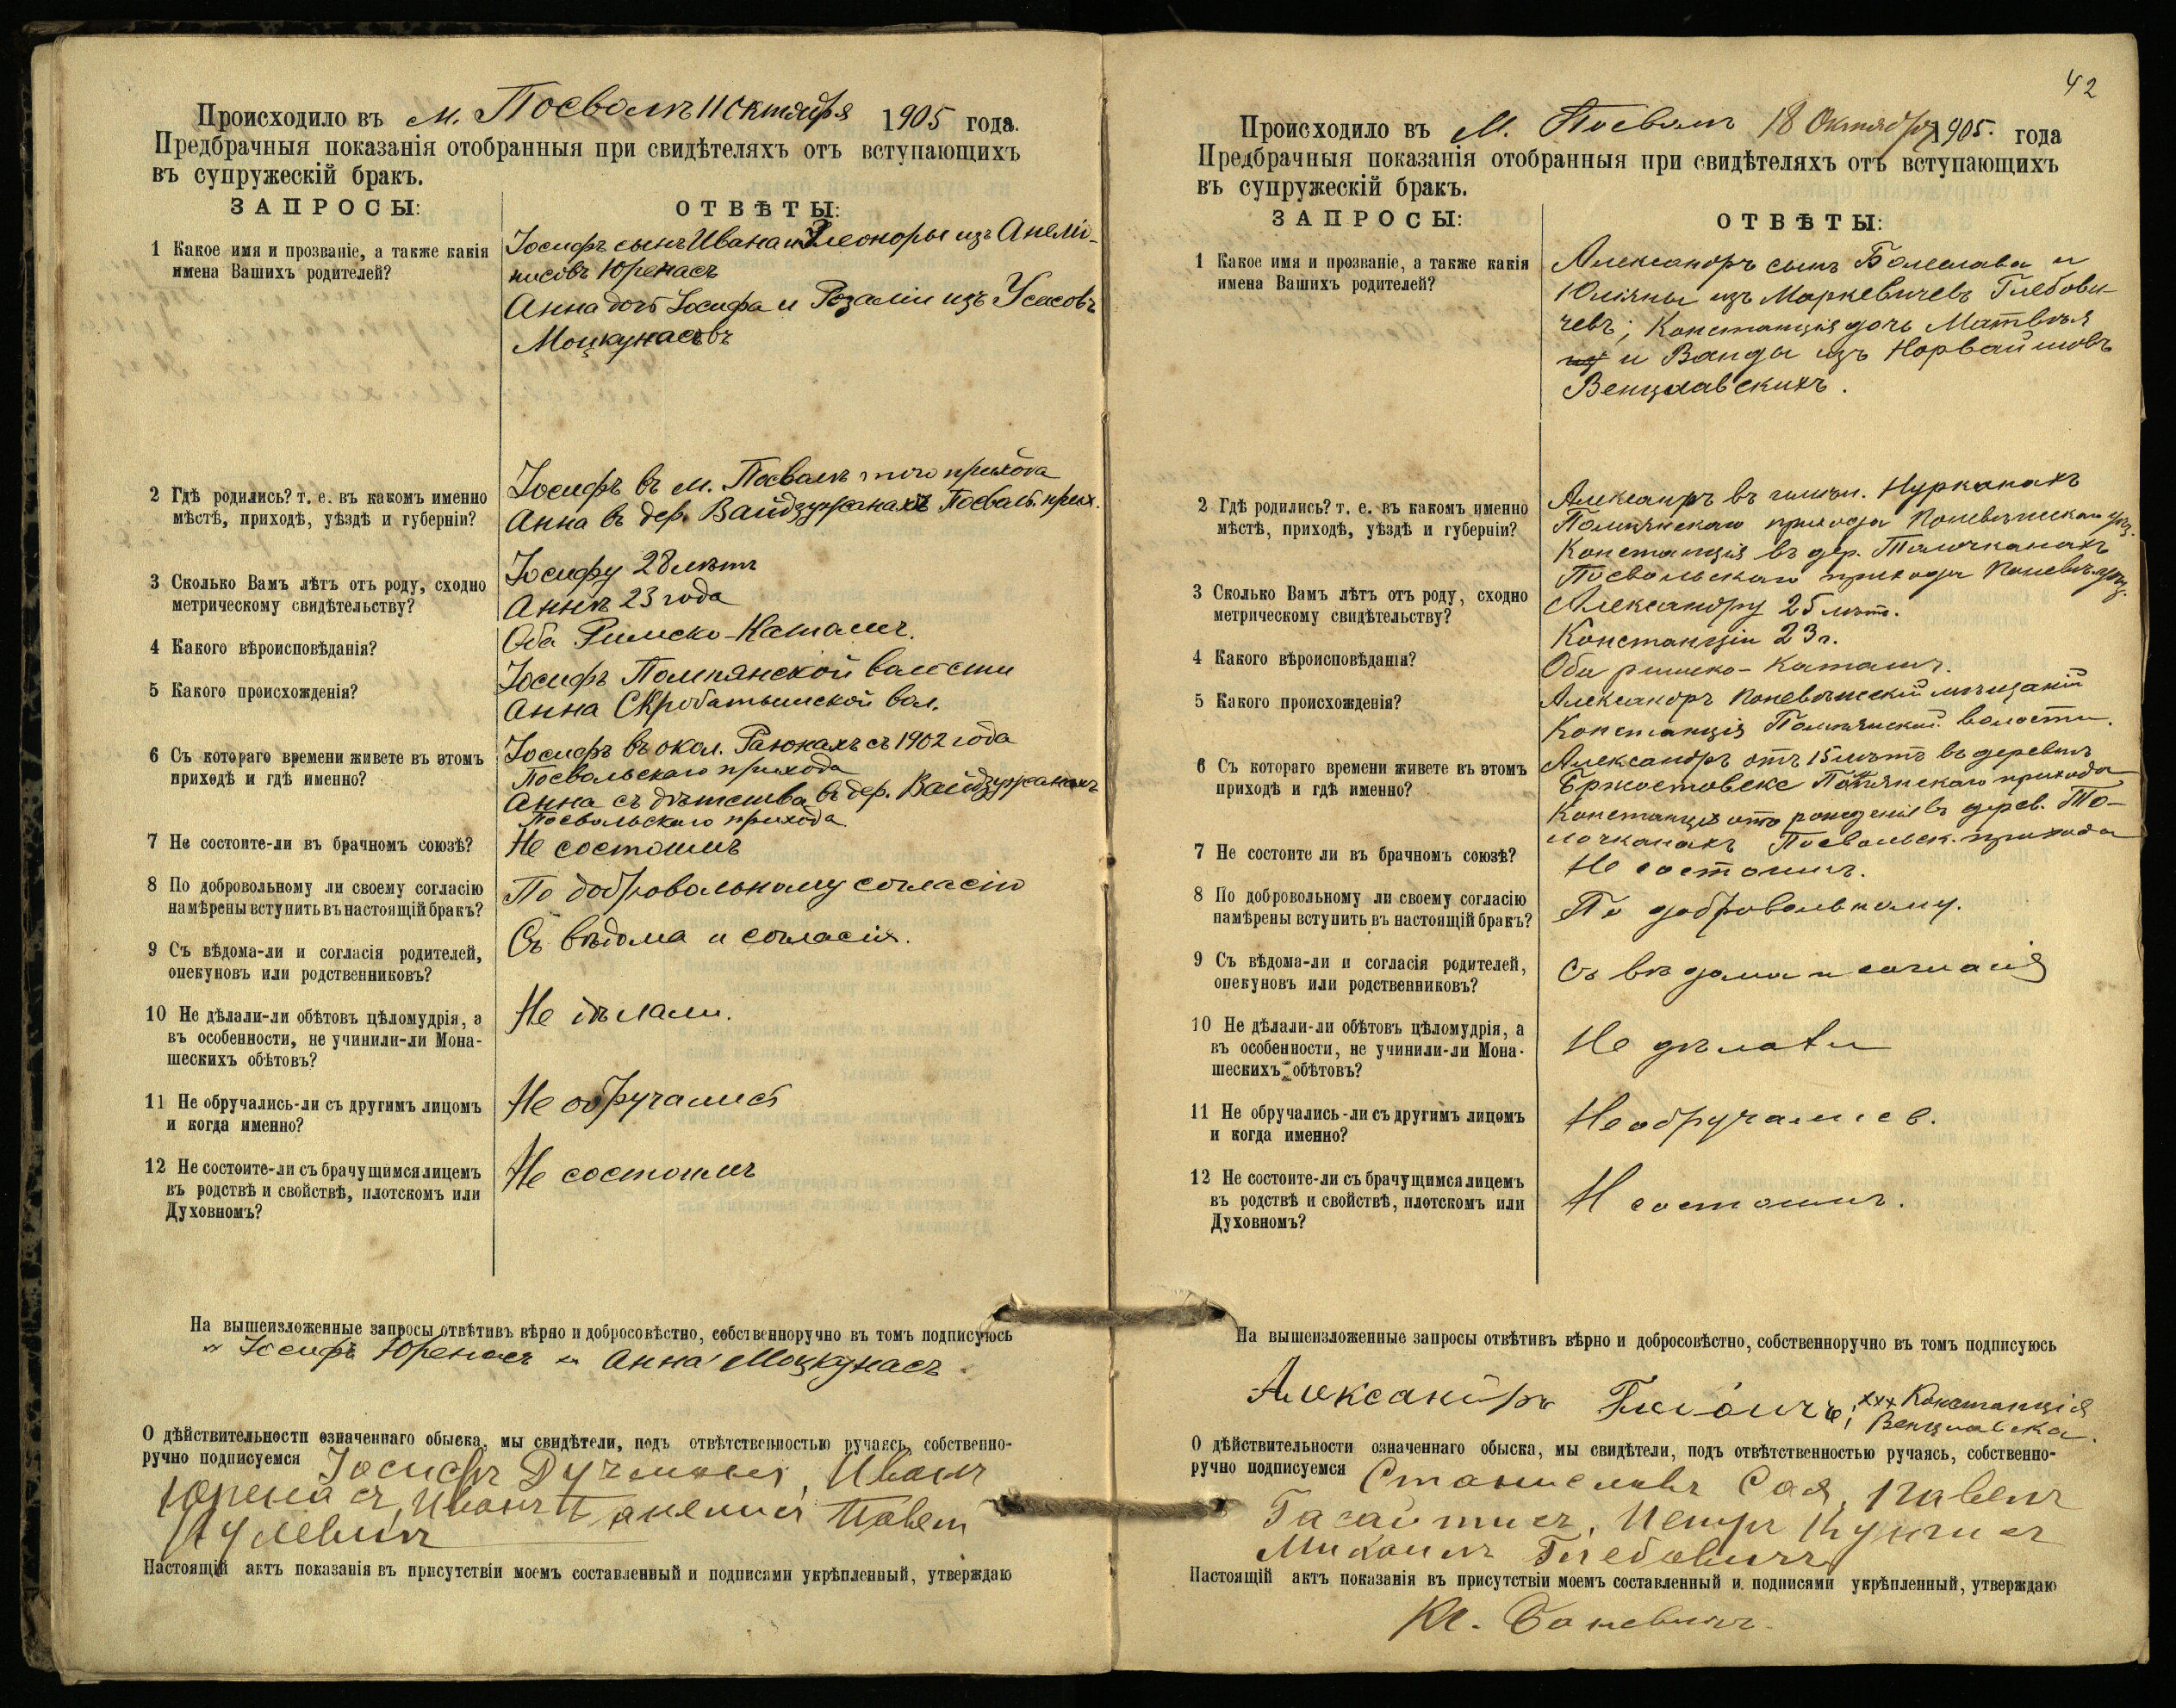 Происходило въ м. Посволѣ 11 Октября 1905 года.
Предбрачныя показанія отобранныя при свидѣтеляхъ отъ вступающихъ
въ супружескій бракъ.
ЗАПРОСЫ:
ОТВѢТЫ:
1 Какое имя и прозваніе, а также какія
имена Вашихъ родителей?
Іосифъ сынъ Ивана и Элеоноры изъ Анелі-
нисовъ Юренасъ
Анна дочь Іосифа и Розаліи изъ Усасовъ
Моцкунасовъ
2 Гдѣ родились? т. е. въ какомъ именно
мѣстѣ, приходѣ, уѣздѣ и губерніи?
Іосифъ въ м. Посволѣ того прихода
Анна въ дер. Вайдзужанахъ Посволь. прих.
3 Сколько Вамъ лѣтъ отъ роду, сходно
метрическому свидѣтельству?
Іосифу 28 лѣтъ
Аннѣ 23 года
4 Какого вѣроисповѣданія?
Оба Римско-Католич.
5 Какого происхожденія?
Іосифъ Помпянской волости
Анна Скробатышской вол.
6 Съ котораго времени живете въ этомъ
приходѣ и гдѣ именно?
Іосифъ въ окол. Раюнахъ съ 1902 года
Посвольскаго прихода
Анна съ дѣтства въ дер. Вайдзужанахъ
Посвольскаго прихода
7 Не состоите-ли въ брачномъ союзѣ?
Не состоимъ
8 По добровольному ли своему согласію
намѣрены вступить въ настоящій бракъ?
По добровольному согласію
9 Съ вѣдома-ли и согласія родителей,
опекуновъ или родственниковъ?
Съ вѣдома и согласія.
10 Не дѣлали-ли обѣтовъ цѣломудрія, а
въ особенности, не учинили-ли Мона-
шескихъ обѣтовъ?
Не дѣлали.
11 Не обручались-ли съ другимъ лицомъ
и когда именно?
Не обручались
12 Не состоите-ли съ брачущимся лицемъ
въ родствѣ и свойствѣ, плотскомъ или
Духовномъ?
Не состоимъ
На вышеизложенные запросы отвѣтивъ вѣрно и добросовѣстно, собственноручно въ томъ подписуюсь
Іосифъ Юренасъ и Анна Моцкунасъ
О дѣйствительности означеннаго обыска, мы свидѣтели, подъ отвѣтственностью ручаясь, собственно-
ручно подписуемся Іосифъ Иванъ
Юренасъ, Иванъ
Настоящій актъ показанія въ присутствіи моемъ составленный и подписями укрѣпленный, утверждаю
42
Происходило въ м. Посволѣ 18 Октября 1905. года
Предбрачныя показанія отобранныя при свидѣтеляхъ отъ вступающихъ
въ супружескій бракъ.
ЗАПРОСЫ:
ОТВѢТЫ:
1 Какое имя и прозваніе, а также какія
имена Вашихъ родителей?
Александръ сынъ Болеслава и
Юліяны изъ Маркевичевъ Глебови-
чевъ; Констанція дочь Матвѣя
и Ванды изъ Норвайшовъ
Венцлавскихъ.
2 Гдѣ родились? т. е. въ какомъ именно
мѣстѣ, приходѣ, уѣздѣ и губерніи?
Александръ въ Нурканахъ
Помпянскаго прихода Поневѣжскаго уѣз.
Констанція въ дер. Толочканахъ
Посвольскаго прихода Поневѣж. уѣз.
3 Сколько Вамъ лѣтъ отъ роду, сходно
метрическому свидѣтельству?
Александру 25 лѣтъ.
Констанціи 23 г.
4 Какого вѣроисповѣданія?
Оби римско-католич.
5 Какого происхожденія?
Александръ Поневѣжскій мѣщанинъ
Констанція Помпянской волости.
6 Съ котораго времени живете въ этомъ
приходѣ и гдѣ именно?
Александръ отъ 15 лѣтъ въ деревнѣ
Бржостовске Помпянскаго прихода
Констанція отъ рожденія въ дерев. То-
лочканахъ Посвольск. прихода
7 Не состоите ли въ брачномъ союзѣ?
Не состоимъ.
8 По добровольному ли своему согласію
намѣрены вступить въ настоящій бракъ?
По добровольному.
9 Съ вѣдома-ли и согласія родителей,
опекуновъ или родственниковъ?
Съ вѣдома и согласія
10 Не дѣлали-ли обѣтовъ цѣломудрія, а
въ особенности, не учинили-ли Мона-
шескихъ обѣтовъ?
Не дѣлали
11 Не обручались-ли съ другимъ лицомъ
и когда именно?
Не обручались.
12 Не состоите-ли съ брачущимся лицемъ
въ родствѣ и свойствѣ, плотскомъ или
Духовномъ?
Н состоимъ.
На вышеизложенные запросы отвѣтивъ вѣрно и добросовѣстно, собственноручно въ томъ подписуюсь
Александръ ; xxx Констанція
Венцлавска.
О дѣйствительности означеннаго обыска, мы свидѣтели, подъ отвѣтственностью ручаясь, собственно-
ручно подписуемся Станиславъ Соя, Павелъ
Петръ
Михаилъ Глебовичъ
Настоящій актъ показанія въ присутствіи моемъ составленный и подписями укрѣпленный, утверждаю
Кс.